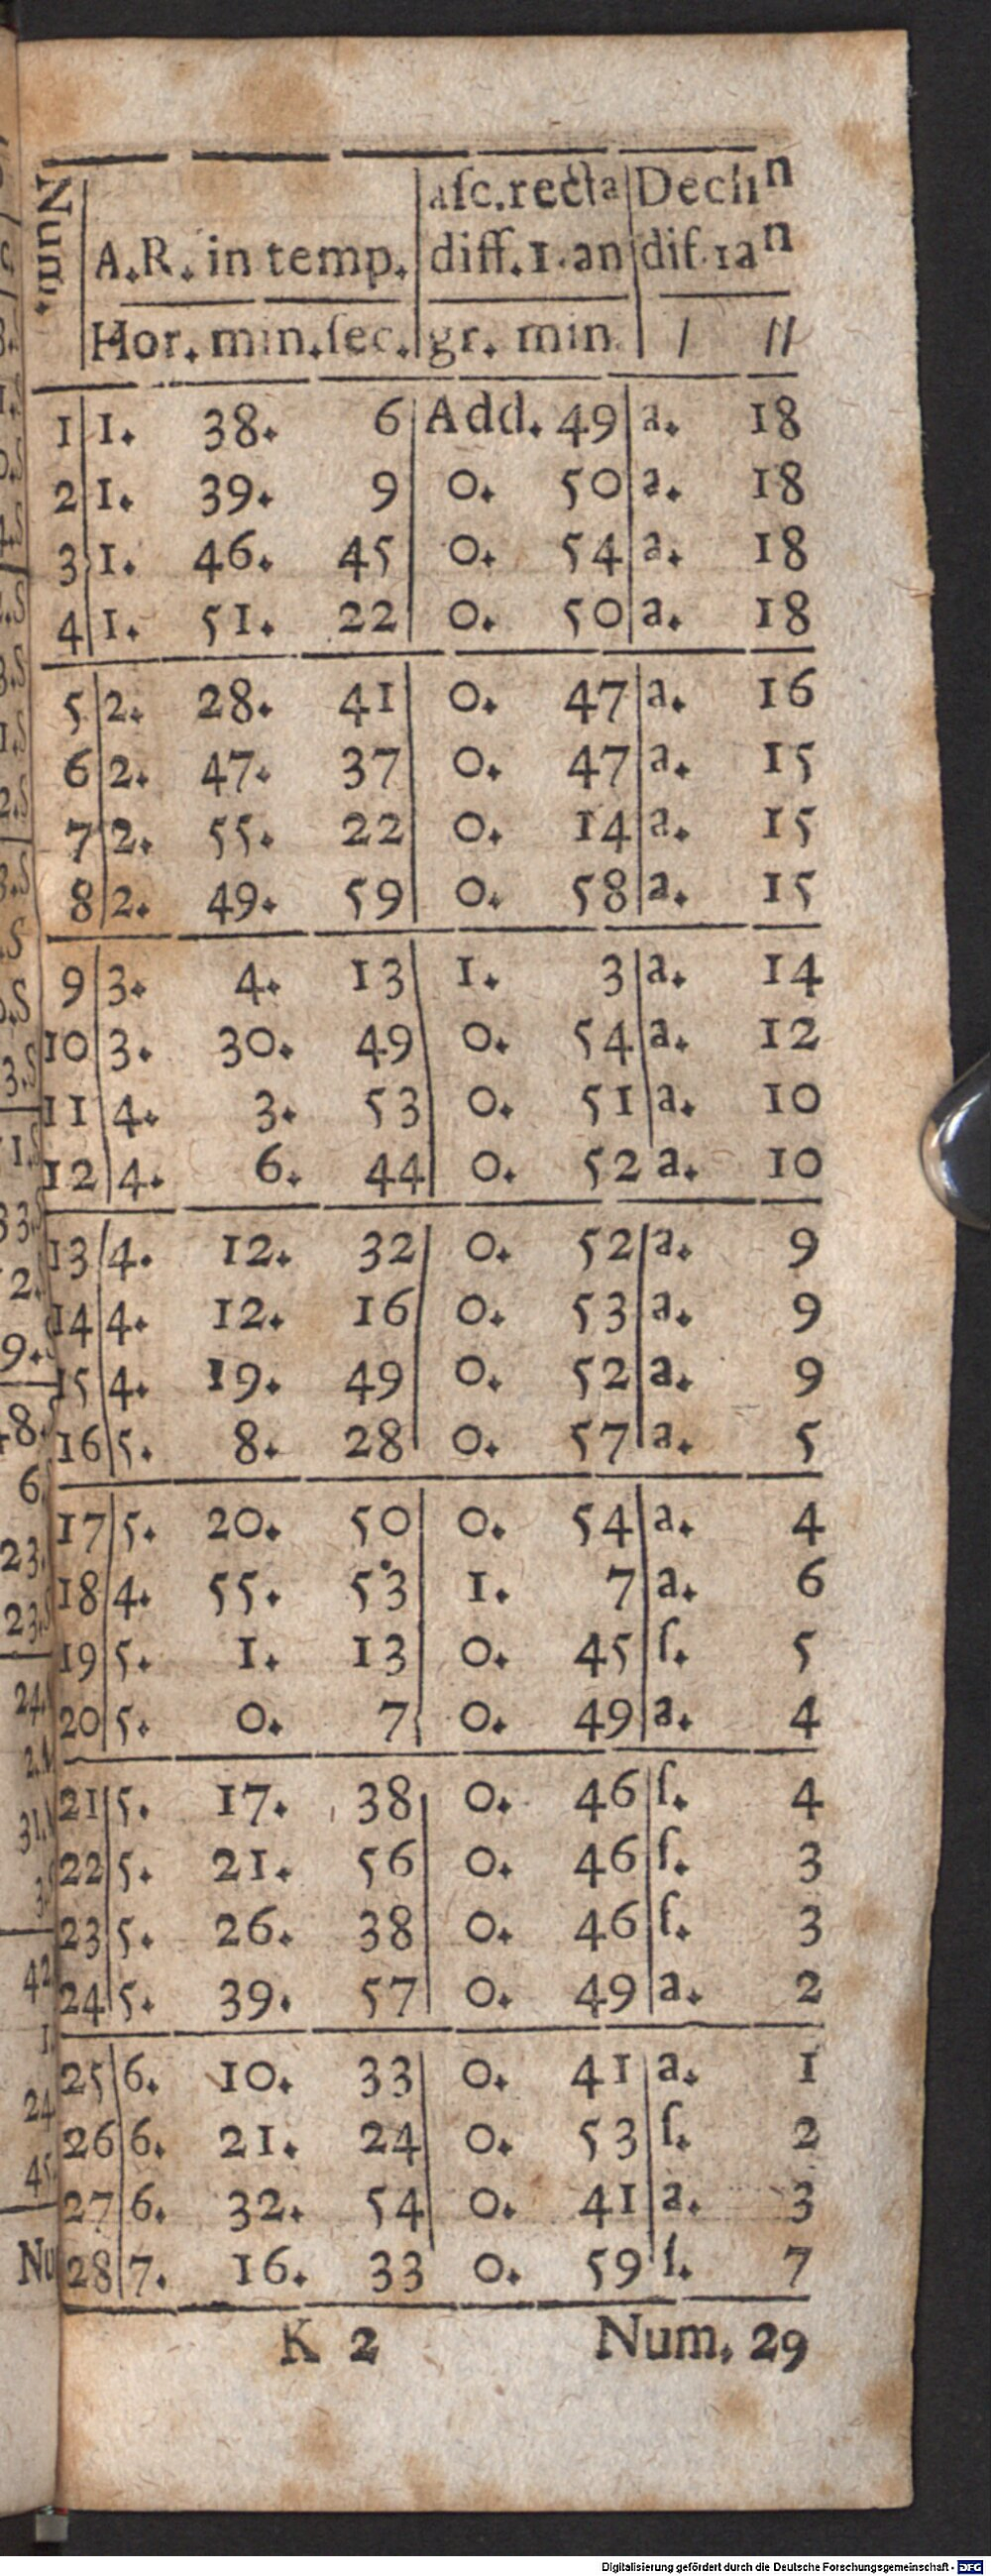 Num. asc.recta Declin
A.R. in temp. diff.1.an dif.1an
Hor. min. ſec. gr. min. / //
1 1. 38. 6 Add. 49 a. 18
2 1. 39. 9 0. 50 a. 18
3 1. 46. 45 0. 54 a. 18
4 1. 51. 22 0. 50 a. 18
5 2. 28. 41 0. 47 a. 16
6 2. 47. 37 0. 47 a. 15
7 2. 55. 22 0. 14 a. 15
8 2. 49. 59 0. 58 a. 15
9 3. 4. 13 1. 3 a. 14
10 3. 30. 49 0. 54 a. 12
11 4. 3. 53 0. 51 a. 10
12 4. 6. 44 0. 52 a. 10
13 4. 12. 32 0. 52 a. 9
14 4. 12. 16 0. 53 a. 9
15 4. 19. 49 0. 52 a. 9
16 5. 8. 28 0. 57 a. 5
17 5. 20. 50 0. 54 a. 4
18 4. 55. 53 1. 7 a. 6
19 5. 1. 13 0. 45 ſ. 5
20 5. 0. 7 0. 49 a. 4
21 5. 17. 38 0. 46 ſ. 4
22 5. 21. 56 0. 46 ſ. 3
23 5. 26. 38 0. 46 ſ. 3
24 5. 39. 57 0. 49 a. 2
25 6. 10. 33 0. 41 a. 1
26 6. 21. 24 0. 53 ſ. 2
27 6. 32. 54 0. 41 a. 3
28 7. 16. 33 0. 59 ſ. 7
K 2 Num. 29
Digitalisierung gefördert durch die Deutsche Forschungsgemeinschaft - DFG